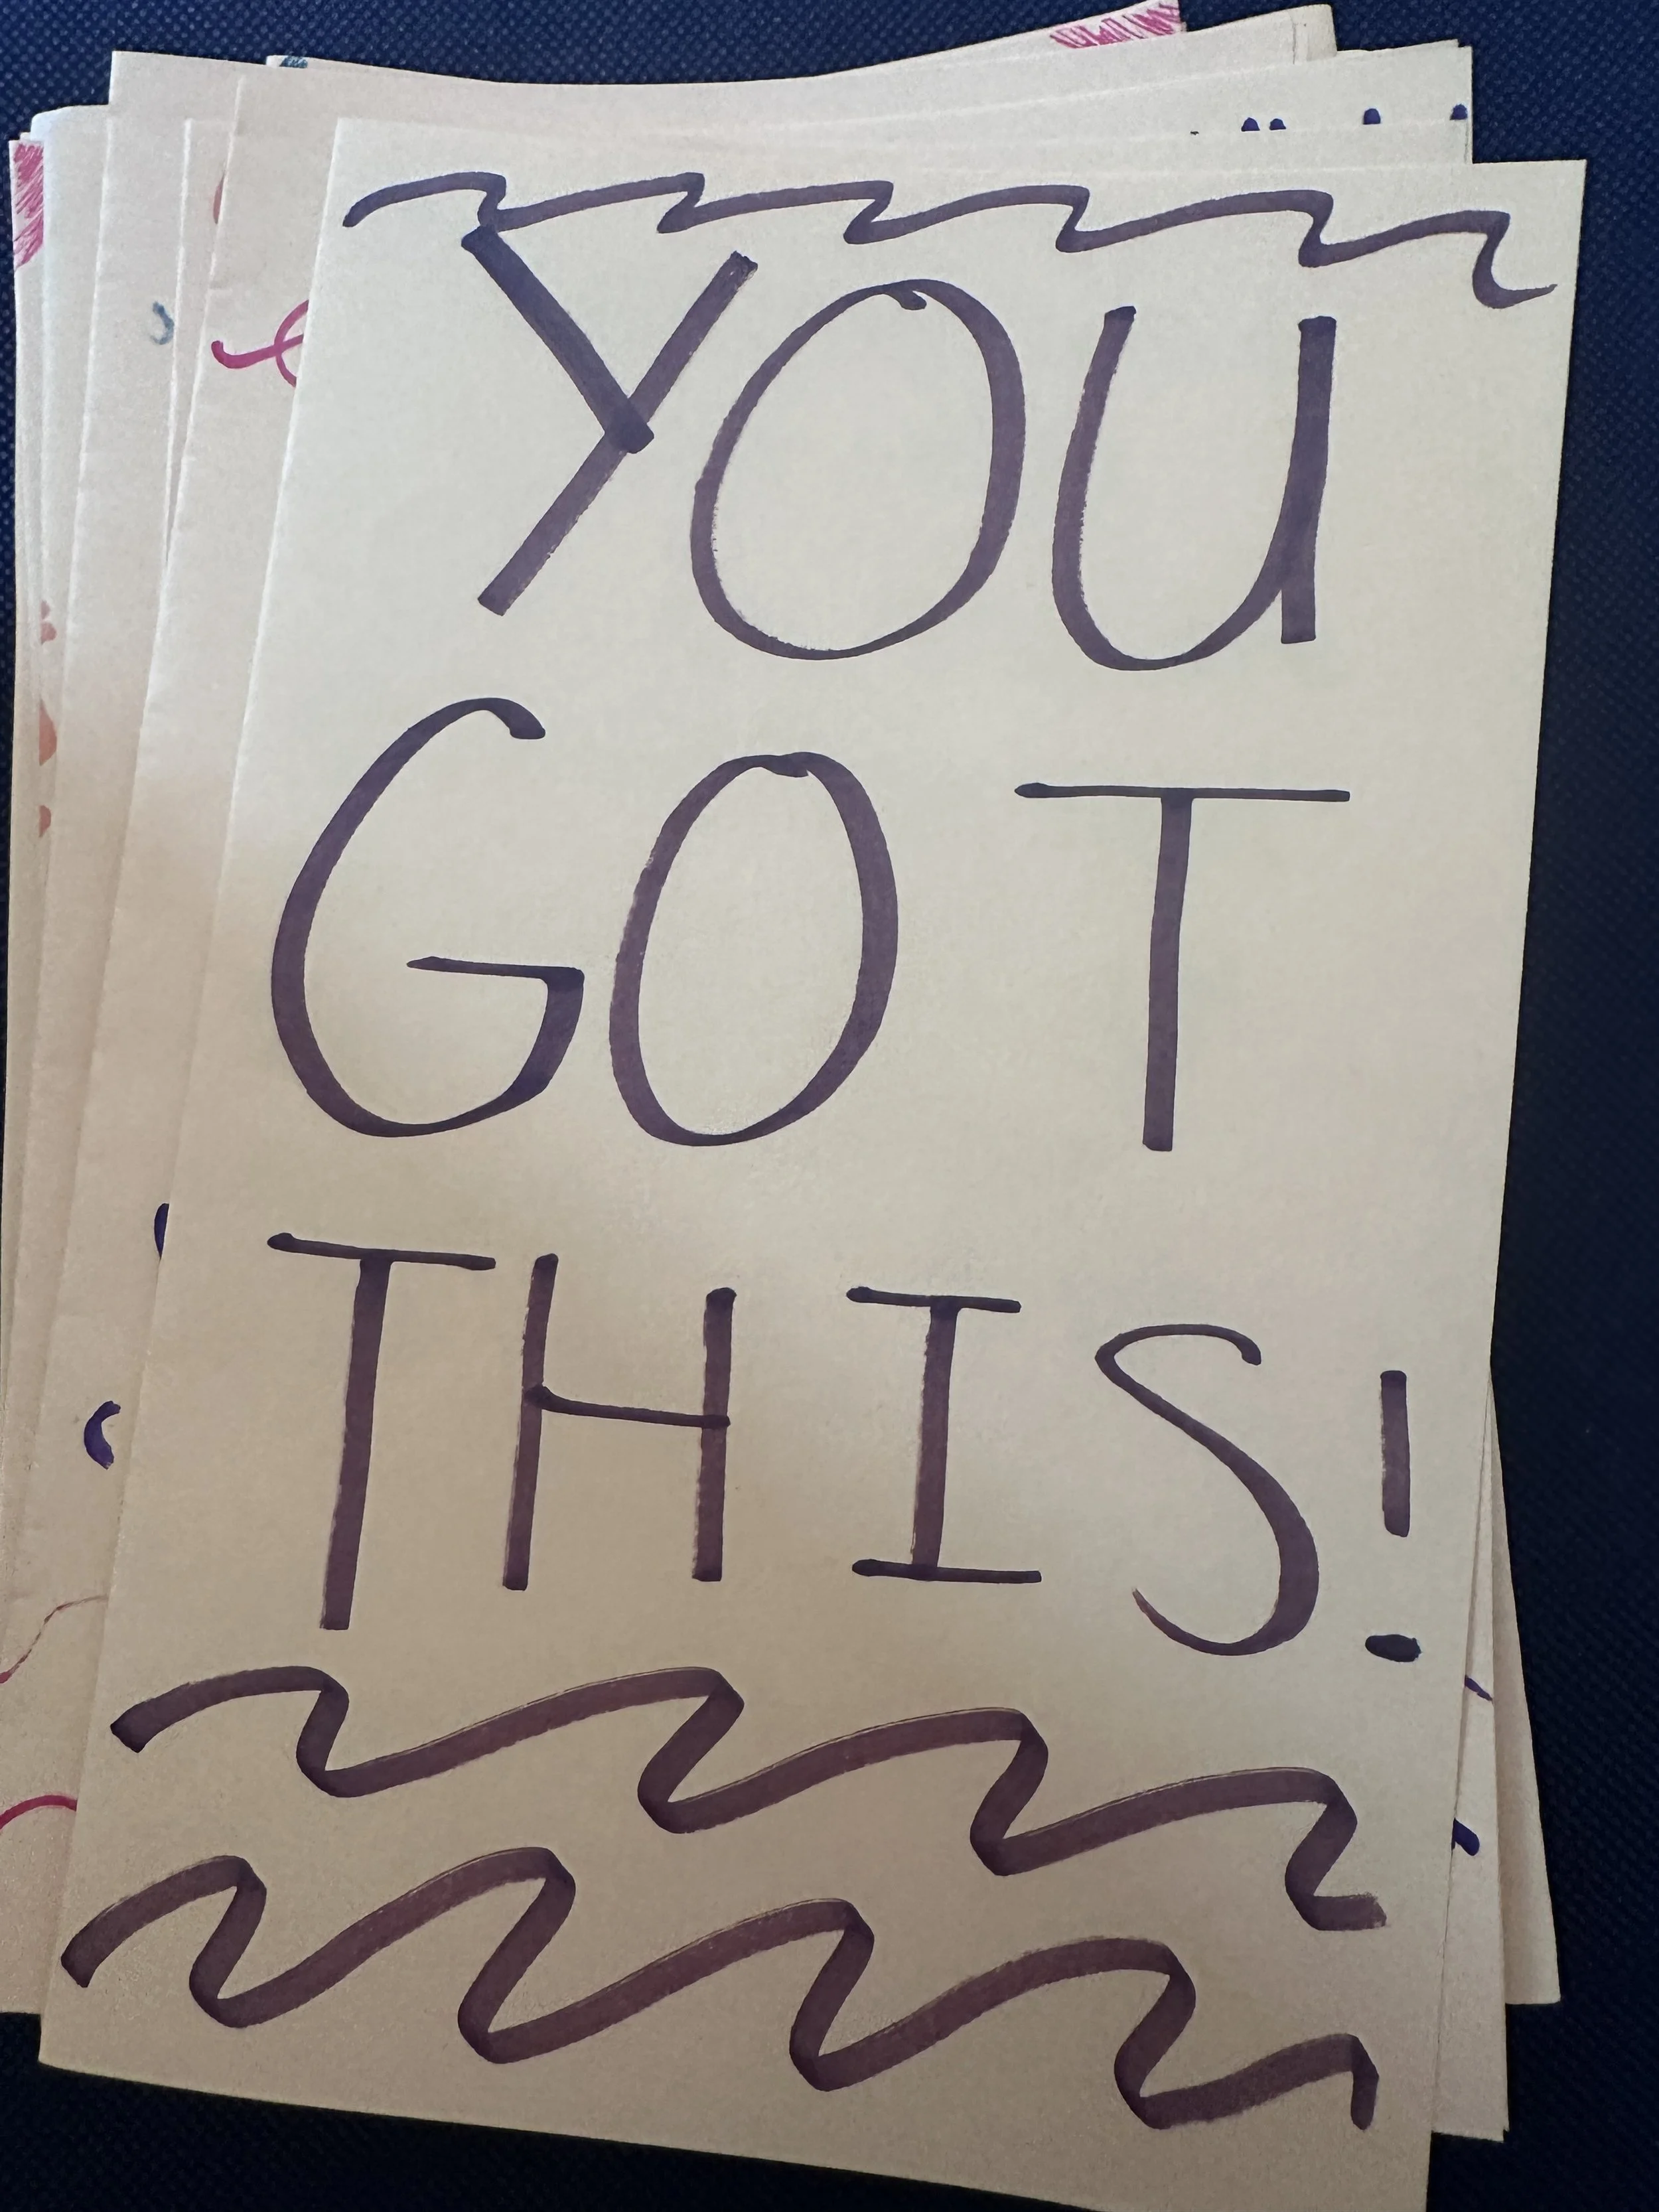 YOU
GOT
THIS!